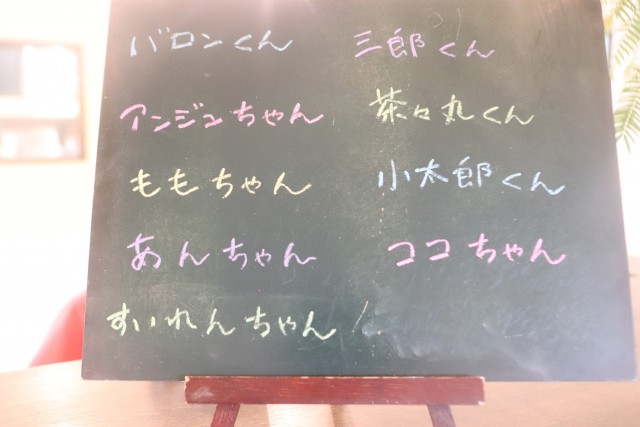 バロンくん
三郎くん
アンジュちゃん
茶々丸くん
ももちゃん
小太郎くん
あんちゃん
ココちゃん
すいれんちゃん